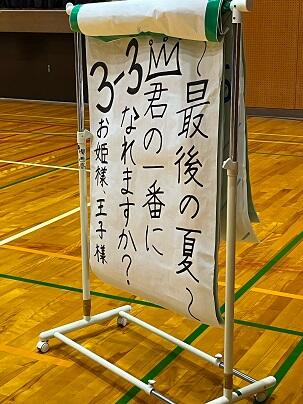 ～最後の夏～
君の一番に
なれますか？
3-3
お姫様、王子様